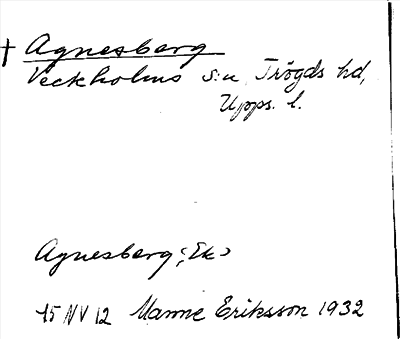 † Agnesberg
Veckholms s:n Trögds hd,
Upps. l.
Agnesberg (Ek)
15 NV 12 Manne Eriksson 1932